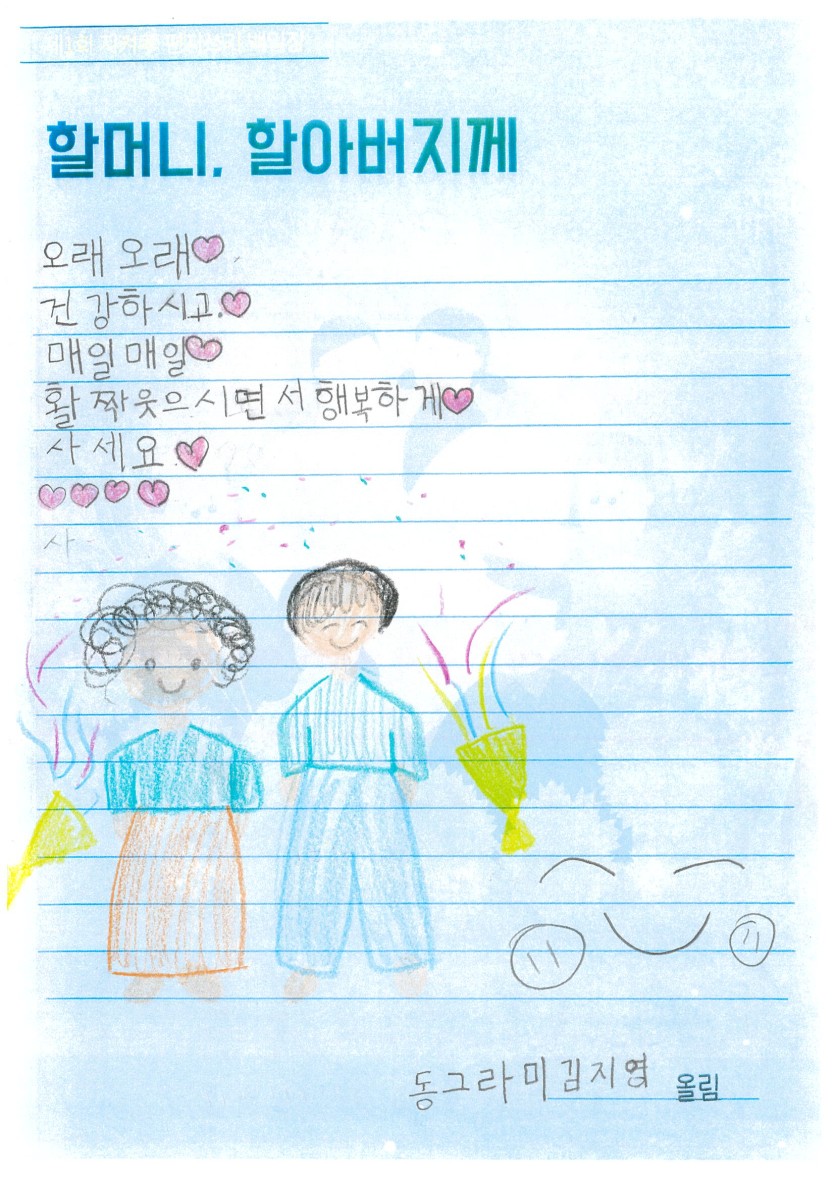 할머니, 할아버지께
오래 오래♥
건강하시고.♥
매일매일♥
활짝웃으시면서 행복하게♥
사세요♥
♥♥♥♥
사
동그라미김지영 올림